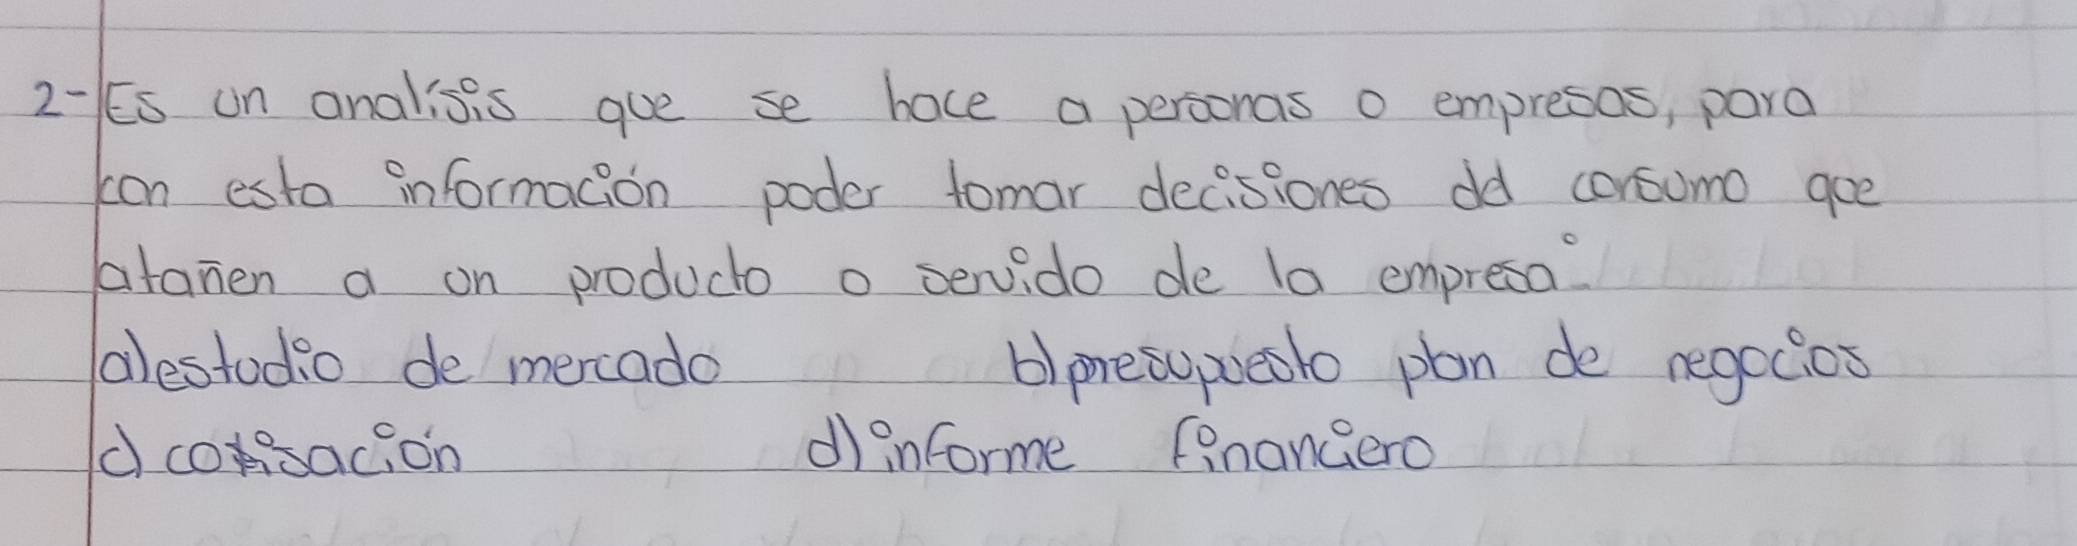 2- Es un analísis que se hace a personas o empresas, para
con esta información poder tomar decisiones dd consumo que
atañen a un producto o servido de la empresa.
a) estudio de mercado b) presupuesto plan de negocios
c) cotisación d) informe financiero